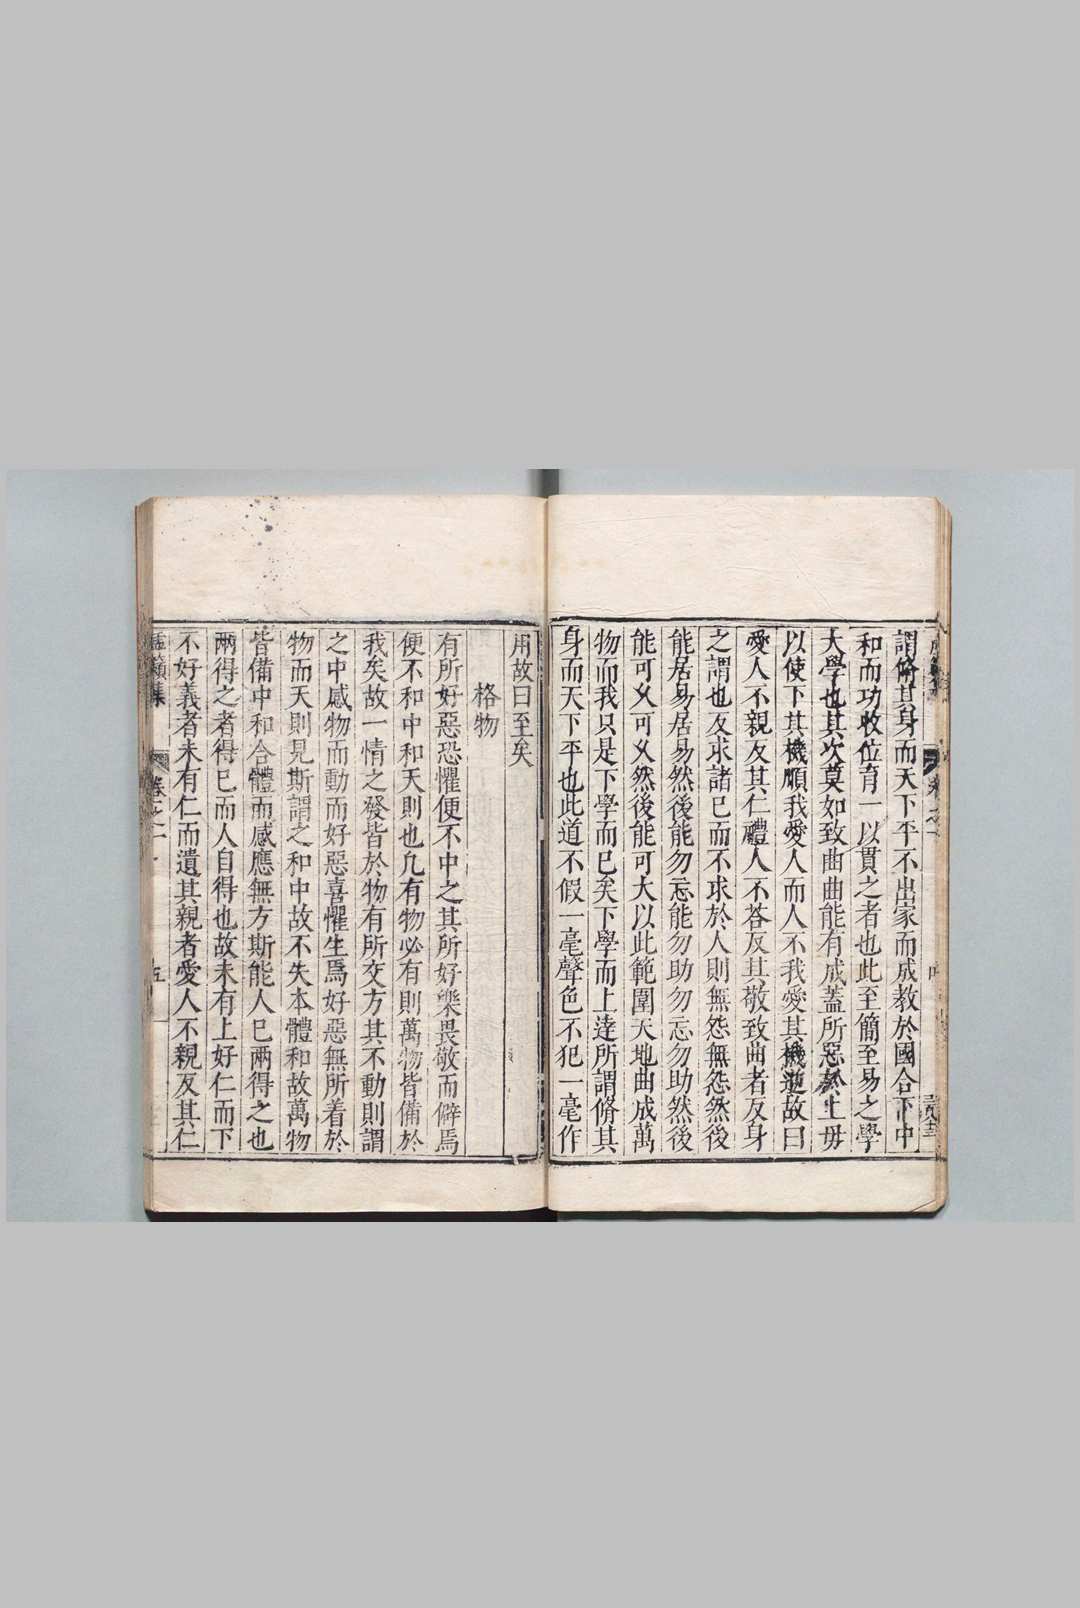 謂脩其身而天下平不出家而成教於國合下中
和而功收位育一以貫之者也此至簡至易之學
大學也其次莫如致曲曲能有成蓋所惡於上毋
以使下其機順我愛人而人不我愛其機逆故曰
愛人不親反其仁禮人不答反其敬致曲者反身
之謂也反求諸已而不求於人則無怨無怨然後
能居易居易然後能勿忘能勿助勿忘勿助然後
能可乂可乂然後能可大以此範圍天地曲成萬
物而我只是下學而已矣下學而上達所謂脩其
身而天下平也此道不假一毫聲色不犯一毫作
用故曰至矣
格物
有所好惡恐懼便不中之其所好樂畏敬而僻焉
便不和中和天則也凡有物必有則萬物皆備於
我矣故一情之發皆於物有所交方其不動則謂
之中感物而動而好惡喜懼生焉好惡無所着於
物而天則見斯謂之和中故不失本體和故萬物
皆備中和合體而感應無方斯能人已兩得之也
兩得之者得已而人自得也故未有上好仁而下
不好義者未有仁而遺其親者愛人不親反其仁
籟集
卷之一
五